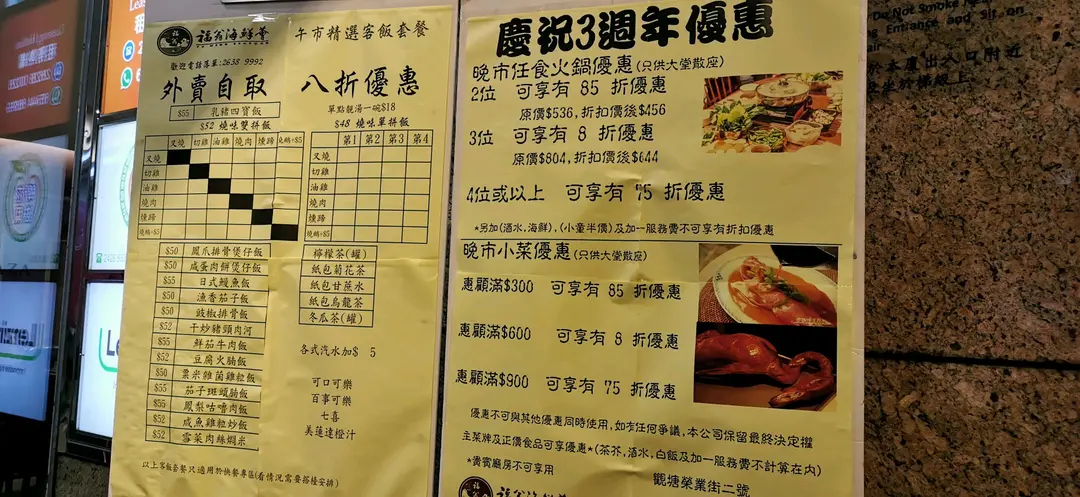 福翁海鮮薈
午市精選客飯套餐
歡迎電話落單:2638 9992
外賣自取 八折優惠
$55 乳豬四寶飯
單點靚湯一碗$18
$52 燒味雙拼飯
$48 燒味單拼飯
叉燒 切雞 油雞 燒肉 燻蹄 燒鵝+$5
第1 第2 第3 第4
叉燒 叉燒
切雞 切雞
油雞 油雞
燒肉 燒肉
燻蹄 燻蹄
燒鵝+$5 燒鵝+$5
$50 鳳爪排骨煲仔飯
$50 咸蛋肉餅煲仔飯
$55 日式鰻魚飯
$50 漁香茄子飯
$50 豉椒排骨飯
$52 干炒豬頸肉河
$55 鮮茄牛肉飯
$52 豆腐火腩飯
$50 粟米雜菌雞粒飯
$55 茄子斑頭腩飯
$55 鳳梨咕嚕肉飯
$52 咸魚雞粒炒飯
$52 雪菜肉絲燜米
檸檬茶(罐)
紙包菊花茶
紙包甘蔗水
紙包烏龍茶
冬瓜茶(罐)
各式汽水加$ 5
可口可樂
百事可樂
七喜
美蓮達橙汁
以上客飯套餐只適用於快餐專區(看情況需要搭檯安排)
慶祝3週年優惠
晚市任食火鍋優惠(只供大堂散座)
2位 可享有 85 折優惠
原價$536,折扣價後$456
3位 可享有 8 折優惠
原價$804,折扣價後$644
4位或以上 可享有 75 折優惠
*另加(酒水,海鮮),(小童半價)及加一服務費不可享有折扣優惠
晚市小菜優惠(只供大堂散座)
惠顧滿$300 可享有 85 折優惠
惠顧滿$600 可享有 8 折優惠
惠顧滿$900 可享有 75 折優惠
優惠不可與其他優惠同時使用,如有任何爭議,本公司保留最終決定權
主菜牌及正價食品可享優惠*(茶芥,酒水,白飯及加一服務費不計算在內)
*貴賓廳房不可享用
觀塘榮業街二號
福翁海鮮薈
Do Not Smoke
Entrance and sit on